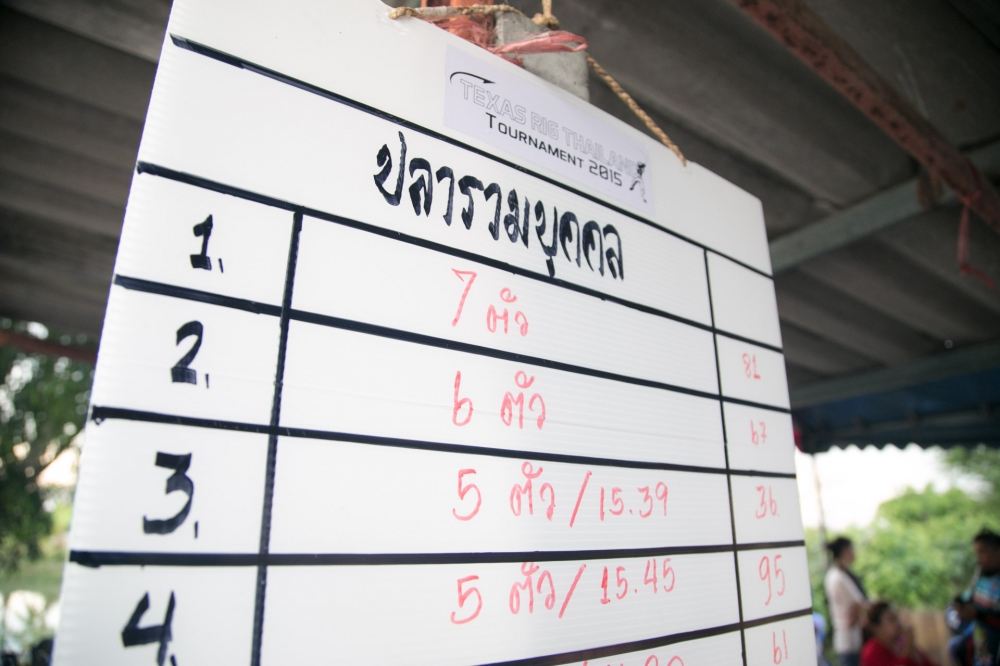 TEXAS RIG THAILAND
TOURNAMENT 2015
ปลารวมบุคคล
1. 7 ตัว 81
2. 6 ตัว 67
3. 5 ตัว/15.39 36
4. 5 ตัว/15.45 95
61